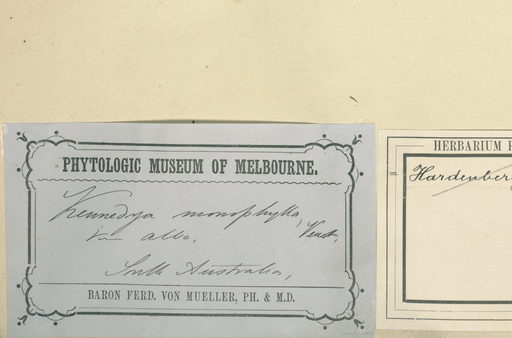 PHYTOLOGIC MUSEUM OF MELBOURNE.
Kennedya monophylla, Vent,
Var alba.
South Australia,
BARON FERD. VON MUELLER, PH. & M.D.
HERBARIUM
Hardenber